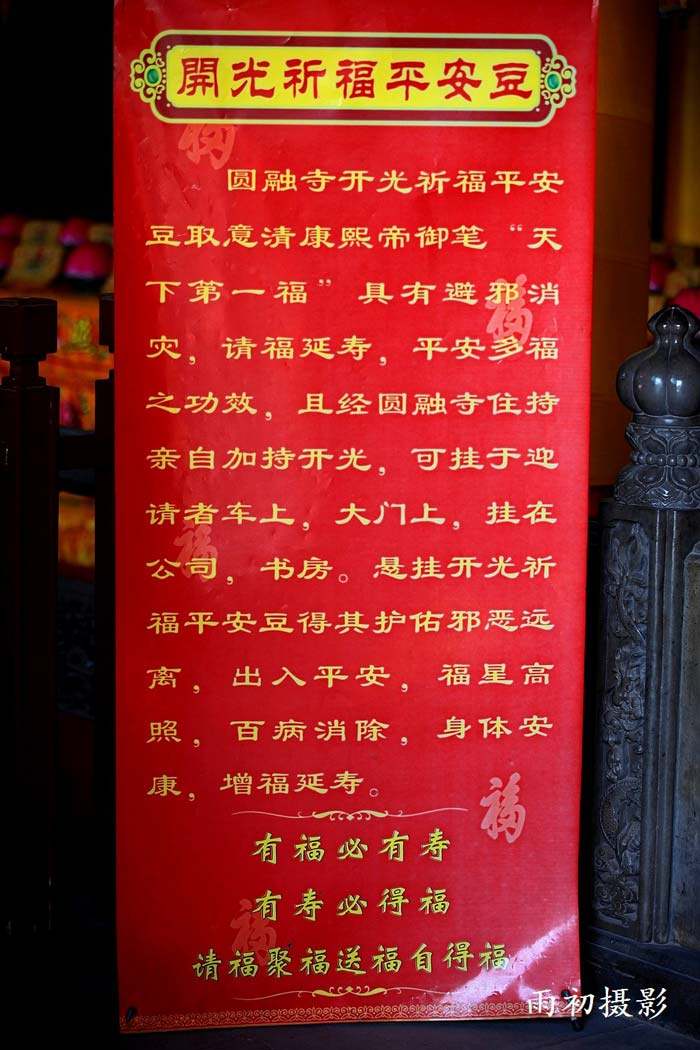 開光祈福平安豆
圆融寺开光祈福平安
豆取意清康熙帝御笔“天
下第一福”具有避邪消
灾，请福延寿，平安多福
之功效，且经圆融寺住持
亲自加持开光，可挂于迎
请者车上，大门上，挂在
公司，书房。悬挂开光祈
福平安豆得其护佑邪恶远
离，出入平安，福星高
照，百病消除，身体安
康，增福延寿。
有福必有寿
有寿必得福
请福聚福送福自得福
雨初摄影